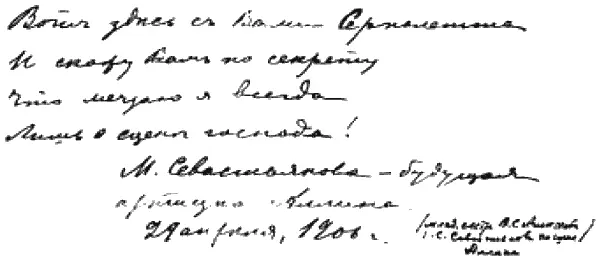 Вотъ здесь съ Вами Серполетта
И скажу Вамъ по секрету
Что мечтаю я всегда
Лишь о сцене господа!
М. Севастьянова – будущая
артистка Алмина
29 апреля, 1906 г.